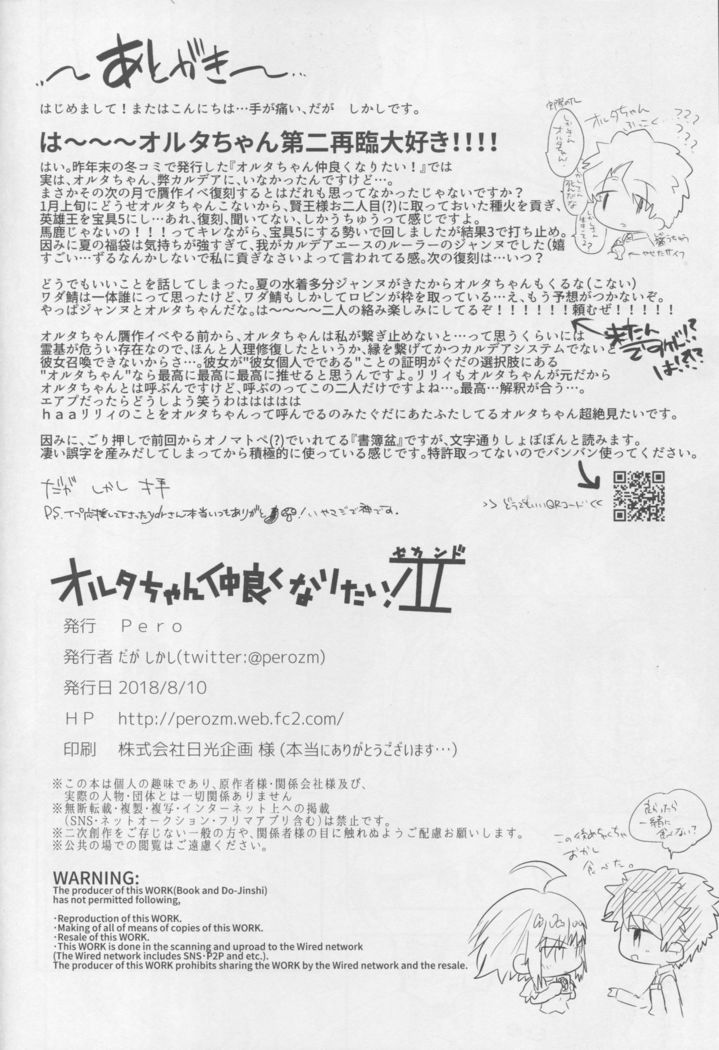 〜あとがき〜
はじめまして！またはこんにちは…手が痛い、だが　しかしです。
は〜〜〜オルタちゃん第二再臨大好き！！！！
はい。昨年末の冬コミで発行した『オルタちゃん仲良くなりたい！』では
実は、オルタちゃん、弊カルデアに、いなかったんですけど…。
まさかその次の月で贋作イベ復刻するとはだれも思ってなかったじゃないですか？
1月上旬にどうせオルタちゃんこないから、賢王様お二人目(?)に取っておいた種火を貢ぎ、
英雄王を宝具5にし…あれ、復刻、聞いてない、しかうちゅうって感じですよ。
馬鹿じゃないの！！！ってキレながら、宝具5にする勢いで回しましたが結果3で打ち止め。
因みに夏の福袋は気持ちが強すぎて、我がカルデアエースのルーラーのジャンヌでした(嬉
すごい…ずるなんかしないで私に貢ぎなさいよって言われてる感。次の復刻は…いつ？
どうでもいいことを話してしまった。夏の水着多分ジャンヌがきたからオルタちゃんもくるな(こない)
ワダ鯖は一体誰にって思ったけど、ワダ鯖もしかしてロビンが枠を取っている…え、もう予想がつかないぞ。
やっぱジャンヌとオルタちゃんだな。は〜〜〜〜二人の絡み楽しみにしてるぞ！！！！！！頼むぜ！！！！！
来たんですが!!?ばぁ??
オルタちゃん贋作イベやる前から、オルタちゃんは私が繋ぎ止めないと…って思うくらいには
霊基が危うい存在なので、ほんと人理修復したというか、縁を繋げてかつカルデアシステムでないと
彼女召喚できないからさ…。彼女が"彼女個人でである"ことの証明がぐだの選択肢にある
"オルタちゃん"なら最高に最高に最高に推せると思うんですよ。リリィもオルタちゃんが元だから
オルタちゃんとは呼ぶんですけど、呼ぶのってこの二人だけですよね…。最高…解釈が合う…。
エアプだったらどうしよう笑うわはははははは
ｈａａリリィのことをオルタちゃんって呼んでるのみたぐだにあたふたしてるオルタちゃん超絶見たいです。
因みに、ごり押しで前回からオノマトペ(?)でいれてる『書簿盆』ですが、文字通りしょぼぼんと読みます。
凄い誤字を産みだしてしまってから積極的に使っている感じです。特許取ってないのでバンバン使ってください。
だが しかし 拝
>>どうでもいいQRコード<<
オルタちゃん仲良くなりたい！II
セカンド
発行　Ｐｅｒｏ
発行者 だが しかし(twitter:@perozm)
発行日 2018/8/10
ＨＰ　http://perozm.web.fc2.com/
印刷　株式会社日光企画 様 (本当にありがとうございます…)
※この本は個人の趣味であり、原作者様・関係会社様及び、
実際の人物・団体とは一切関係ありません
※無断転載・複製・複写・インターネット上への掲載
（SNS・ネットオークション・フリマアプリ含む）は禁止です。
※二次創作をご存じない一般の方や、関係者様の目に触れぬようご配慮お願いします。
※公共の場での閲覧はご遠慮ください。
WARNING:
The producer of this WORK(Book and Do-Jinshi)
has not permitted following,
・Reproduction of this WORK.
・Making of all of means of copies of this WORK.
・Resale of this WORK.
・This WORK is done in the scanning and uproad to the Wired network
(The Wired network includes SNS・P2P and etc.).
The producer of this WORK prohibits sharing the WORK by the Wired network and the resale.
良かったら
一緒に
食べない？
この後めちゃくちゃ
おかし
食べた。